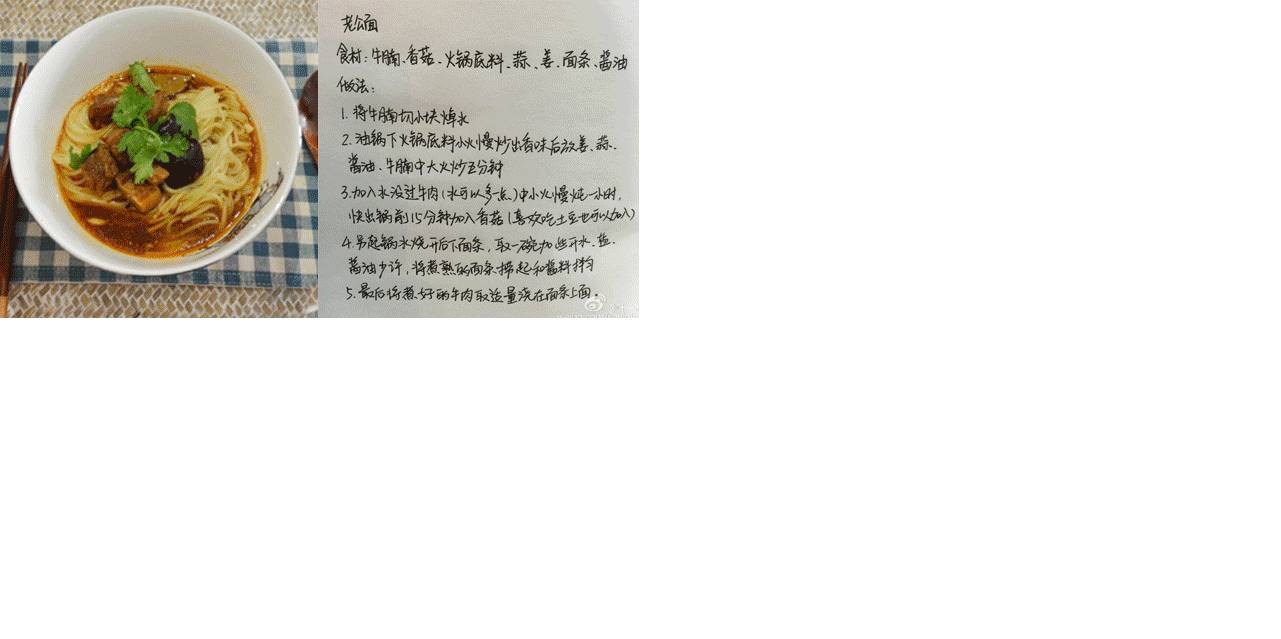 老公面
食材：牛腩、香菇、火锅底料、蒜、姜、面条、酱油
做法：
1. 将牛腩切小块焯水
2. 油锅下火锅底料小火慢炒出香味后放姜、蒜、
酱油、牛腩中大火炒五分钟
3. 加入水没过牛肉（水可以多一点）中小火慢炖一小时，
快出锅前15分钟加入香菇（喜欢吃土豆也可以加入）
4. 另起锅水烧开后下面条，取一碗加些开水、盐、
酱油少许，将煮熟的面条捞起和酱料拌匀
5. 最后将煮好的牛肉取适量浇在面条上面。